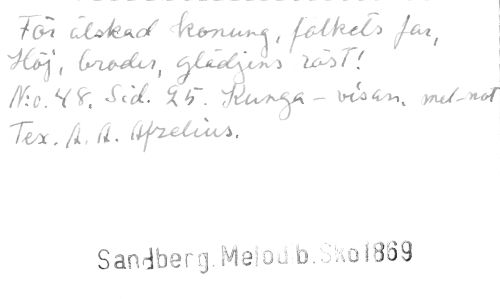 För älskad konung, folkets far,
Höj, broder, glädjens röst!
N:o. 48. Sid. 25. Kunga-visan. mel-not
Tex. A. A. Afzelius.
Sandberg. Melod b. Sko 1869